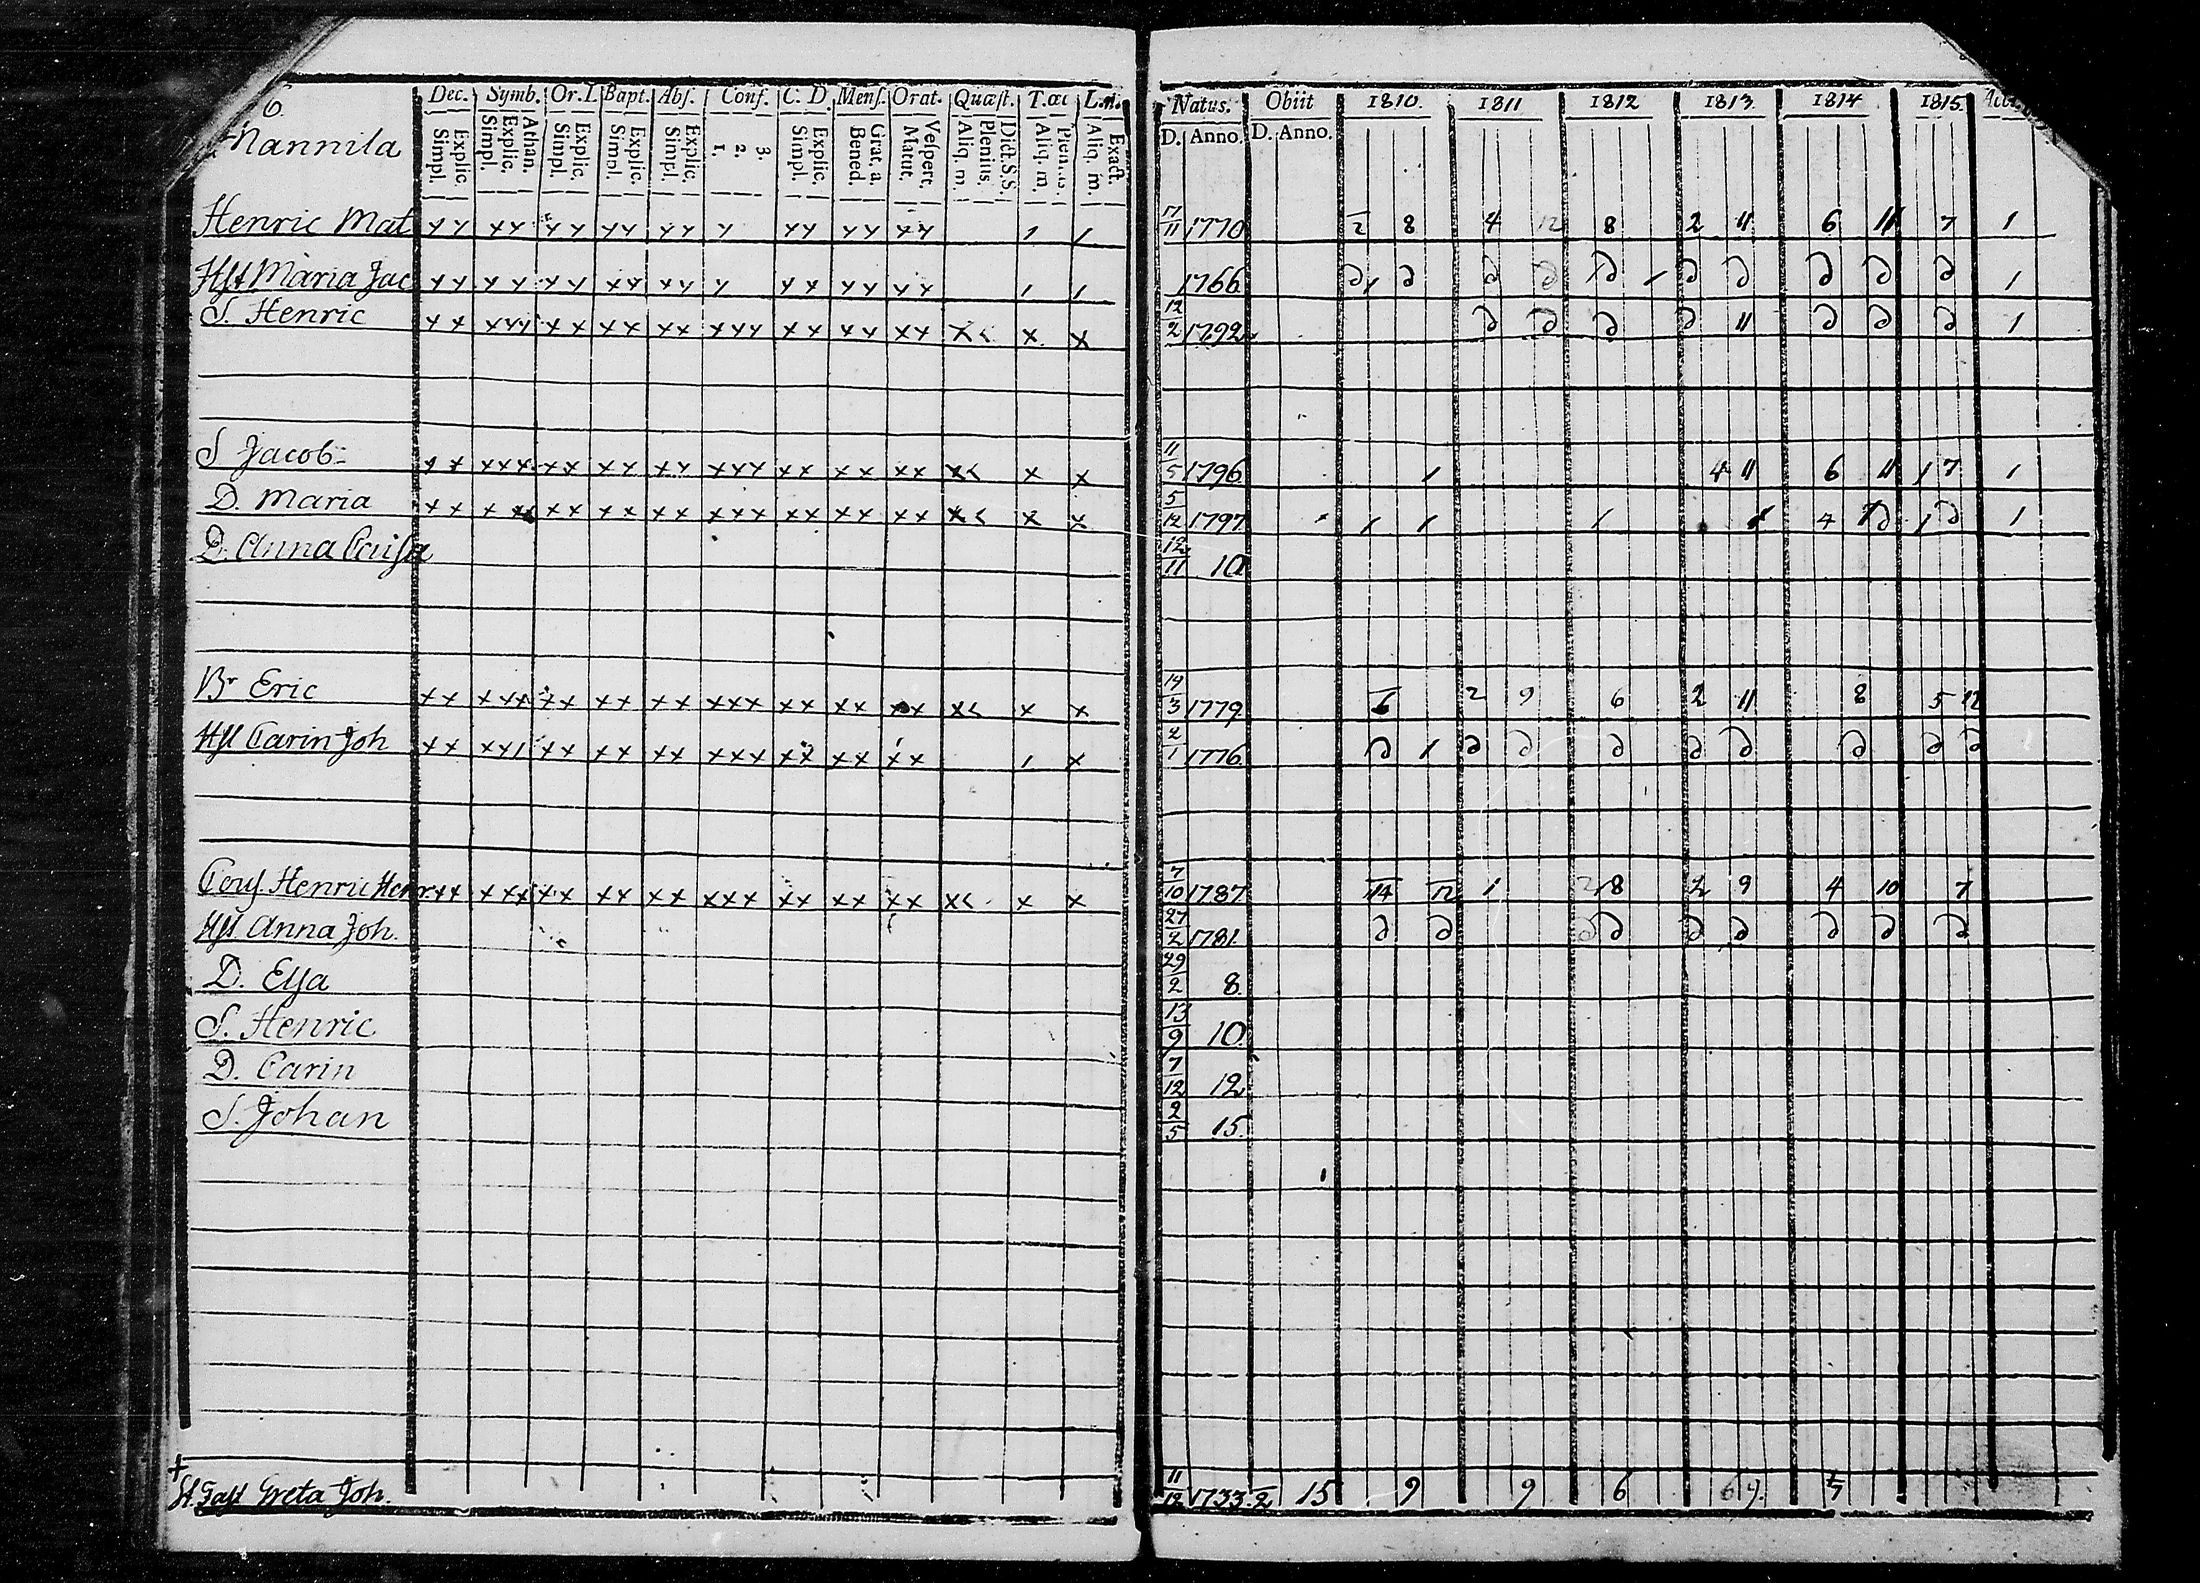 6.
Nannila
Dec. Symb. Or. D. Bapt. Abs. Conf. C. D. Mens. Orat. Quæst. T.œc L.n.
Explic. Simpl. Athan. Explic. Simpl. Explic. Simpl. Explic. Simpl. Explic. Simpl. 3. 2. 1. Explic. Simpl. Grat. a. Bened. Vespert. Matut. Dict.S.S. Plenius. Aliq. m. Plenius. Aliq. m. Exact. Aliq. m.
Natus. Obiit 1810. 1811 1812 1813. 1814 1815.
D. Anno. D. Anno.
Henric Mat 11 1770 2 8 4 12 8 2 11 6 11 7 1
Hst Maria Jac 1766 1
S. Henric 12/2 1792 11 1
S Jacob 11/5 1796 1 4 11 6 11 1 7 1
D. Maria 5/12 1797 1 1 1 4 1 1
D. Anna Caisa 12/11 10
Br Eric 14/3 1779 6 2 9 6 2 11 8 5 12
Hst Carin Joh 2/1 1776 1
Henric Henr 7/10 1787 14 12 1 2 8 2 9 4 10 7
Hst Anna Joh. 27/2 1781
D. Elsa 29/2 8.
S. Henric 13/9 10
D. Carin 7/12 12
S. Johan 2/5 15.
+
Greta Joh. 11/12 1733. 2 15 9 9 6 6 9.